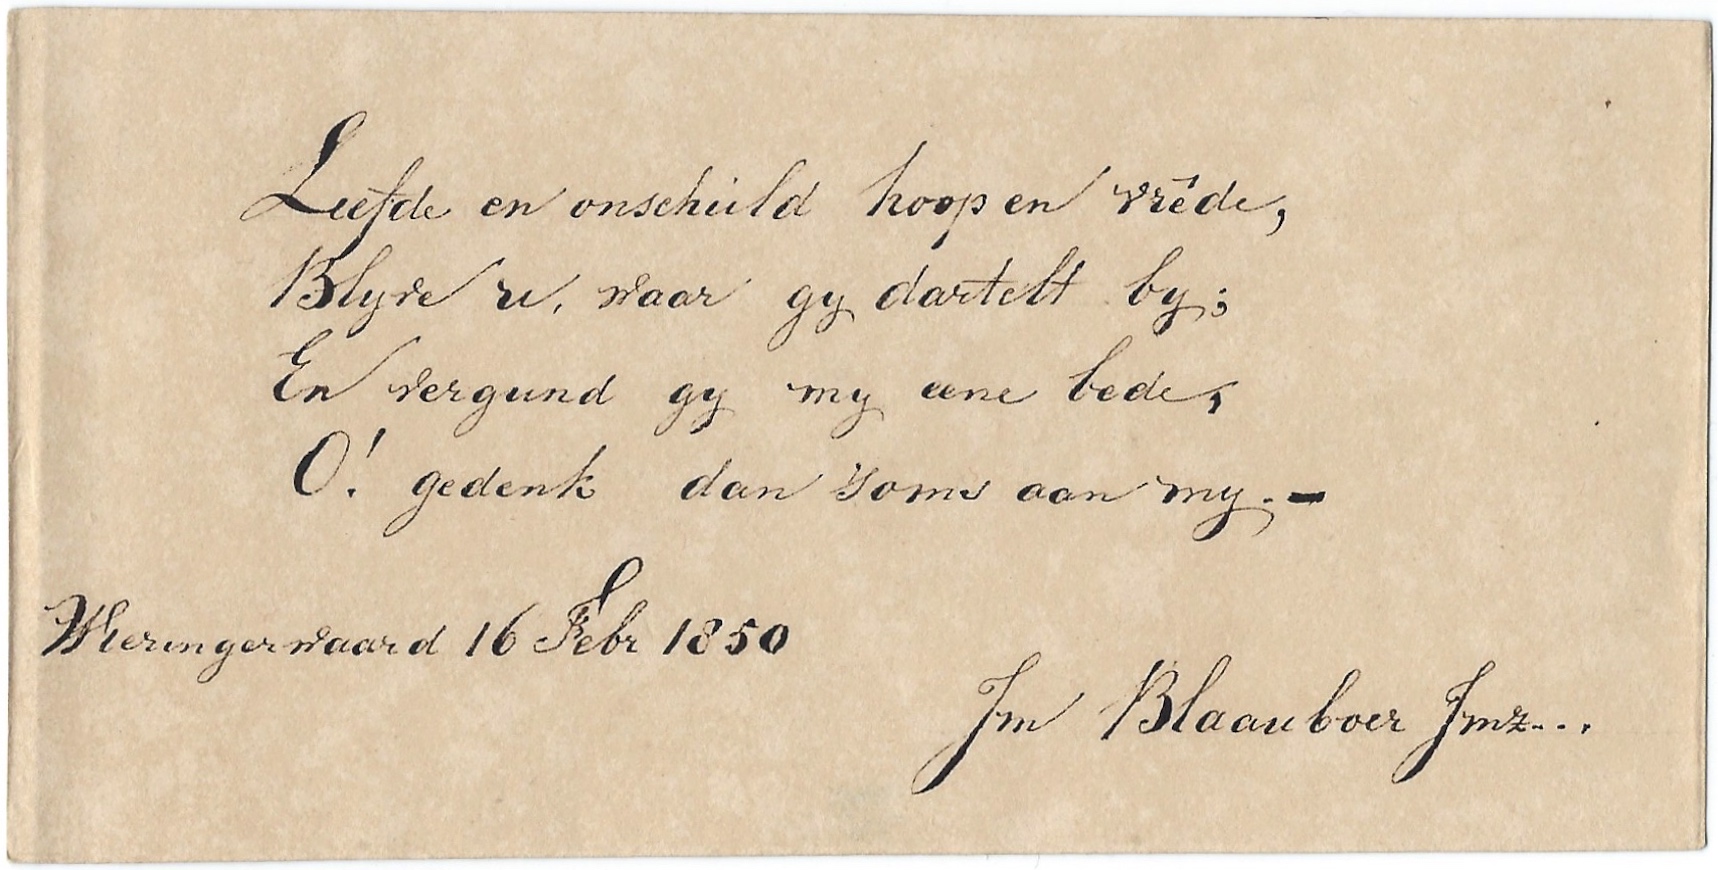 Liefde en onschuld hoop en vrêde,
Blyve u, waar gy dartelt by;
En vergund gy my eene bede,
O! gedenk dan soms aan my. -
Wieringerwaard 16 Febr 1850
Jm Blaauboer Jmz...